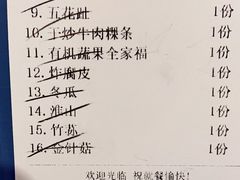 9. 五花趾 1份
10. 干炒牛肉粿条 1份
11. 有机蔬果全家福 1份
12. 炸腐皮 1份
13. 冬瓜 1份
14. 淮山 1份
15. 竹荪 1份
16. 金针菇 1份
欢迎光临 祝就餐愉快!